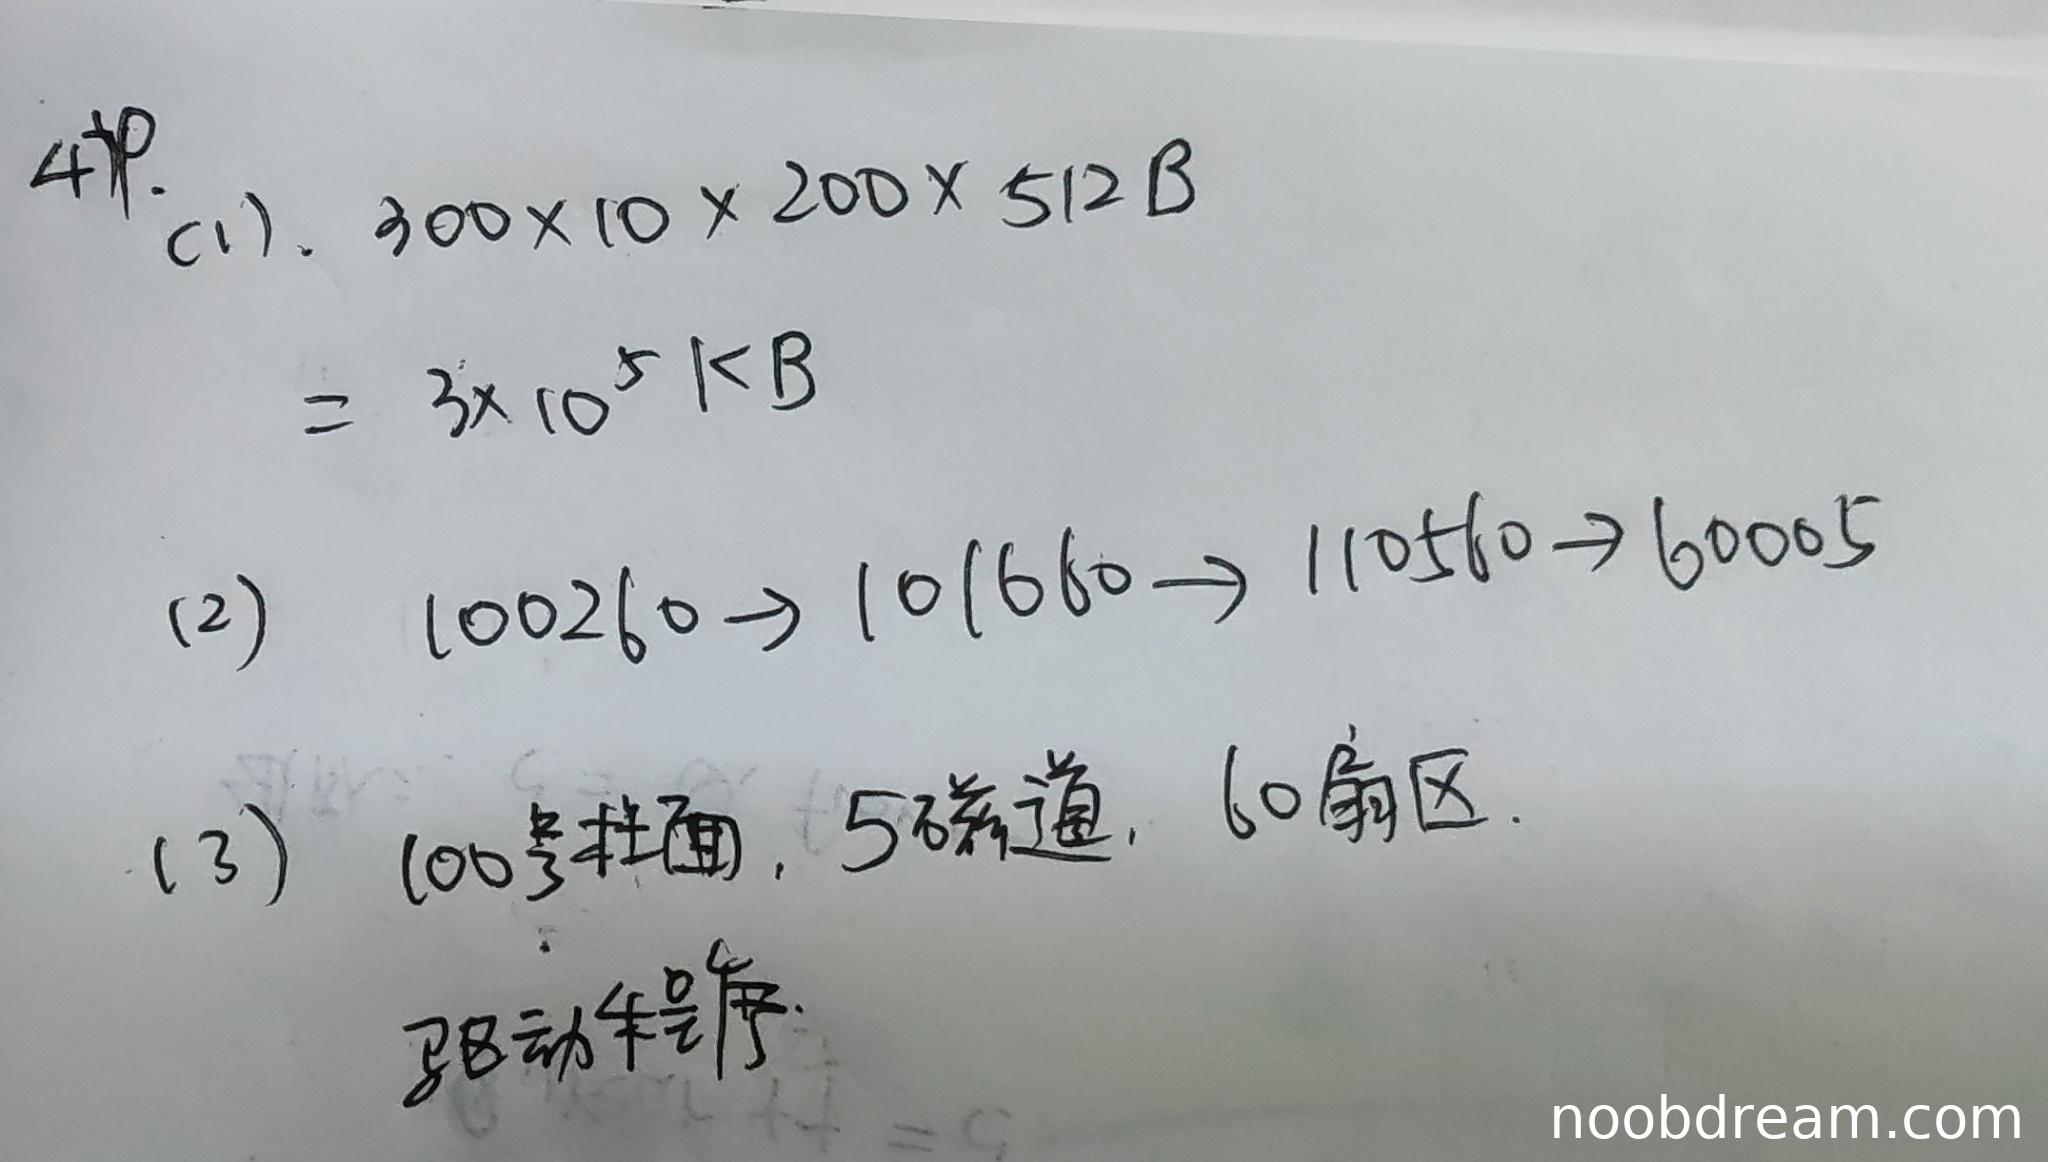 4
(1). 300×10×200×512B
= 3×10⁵ KB
(2) 100260→101660→110560→60005
(3) 100号柱面, 5磁道, 60扇区.
驱动程序.
noobdream.com